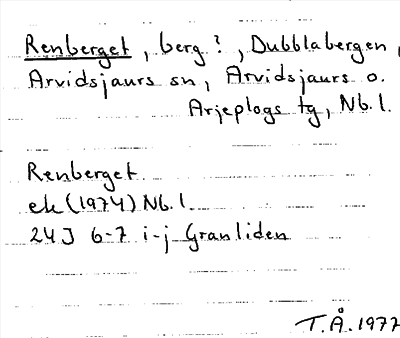 Renberget, berg?, Dubblabergen,
Arvidsjaurs sn, Arvidsjaurs o.
Arjeplogs tg, Nb.l.
Renberget.
ek (1974) Nb.l.
24J 6-7 i-j Granliden
T.Å. 1977